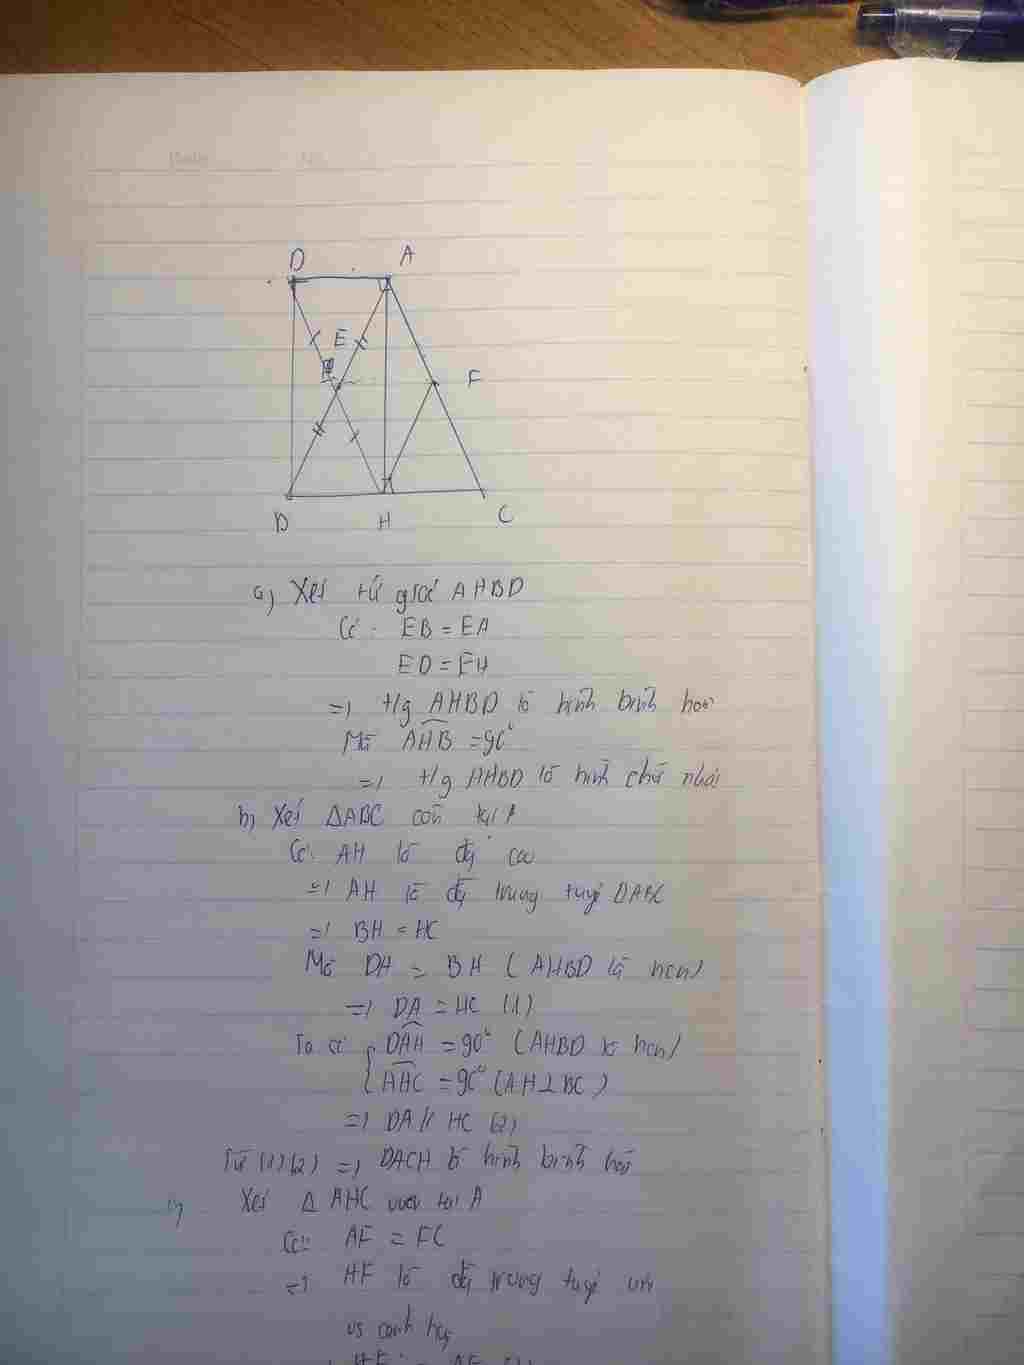 D A
E
F
B H C
a) Xét tứ giác AHBD
Có: EB = EA
ED = EH
=> t/g AHBD là hình bình hành
Mà AHB = 90°
=> t/g AHBD là hình chữ nhật
b) Xét ΔABC cân tại A
Có: AH là đg cao
=> AH là đg trung tuyế ΔABC
=> BH = HC
Mà DA = BH (AHBD là hcn)
=> DA = HC (1)
Ta có DAH = 90° (AHBD là hcn)
AHC = 90° (AH⊥BC)
=> DA // HC (2)
Từ (1)(2) => DACH là hình bình hà
Xét Δ AHC vuôn tại A
Có: AF = FC
=> HF là đg trung tuyế
vs cạnh